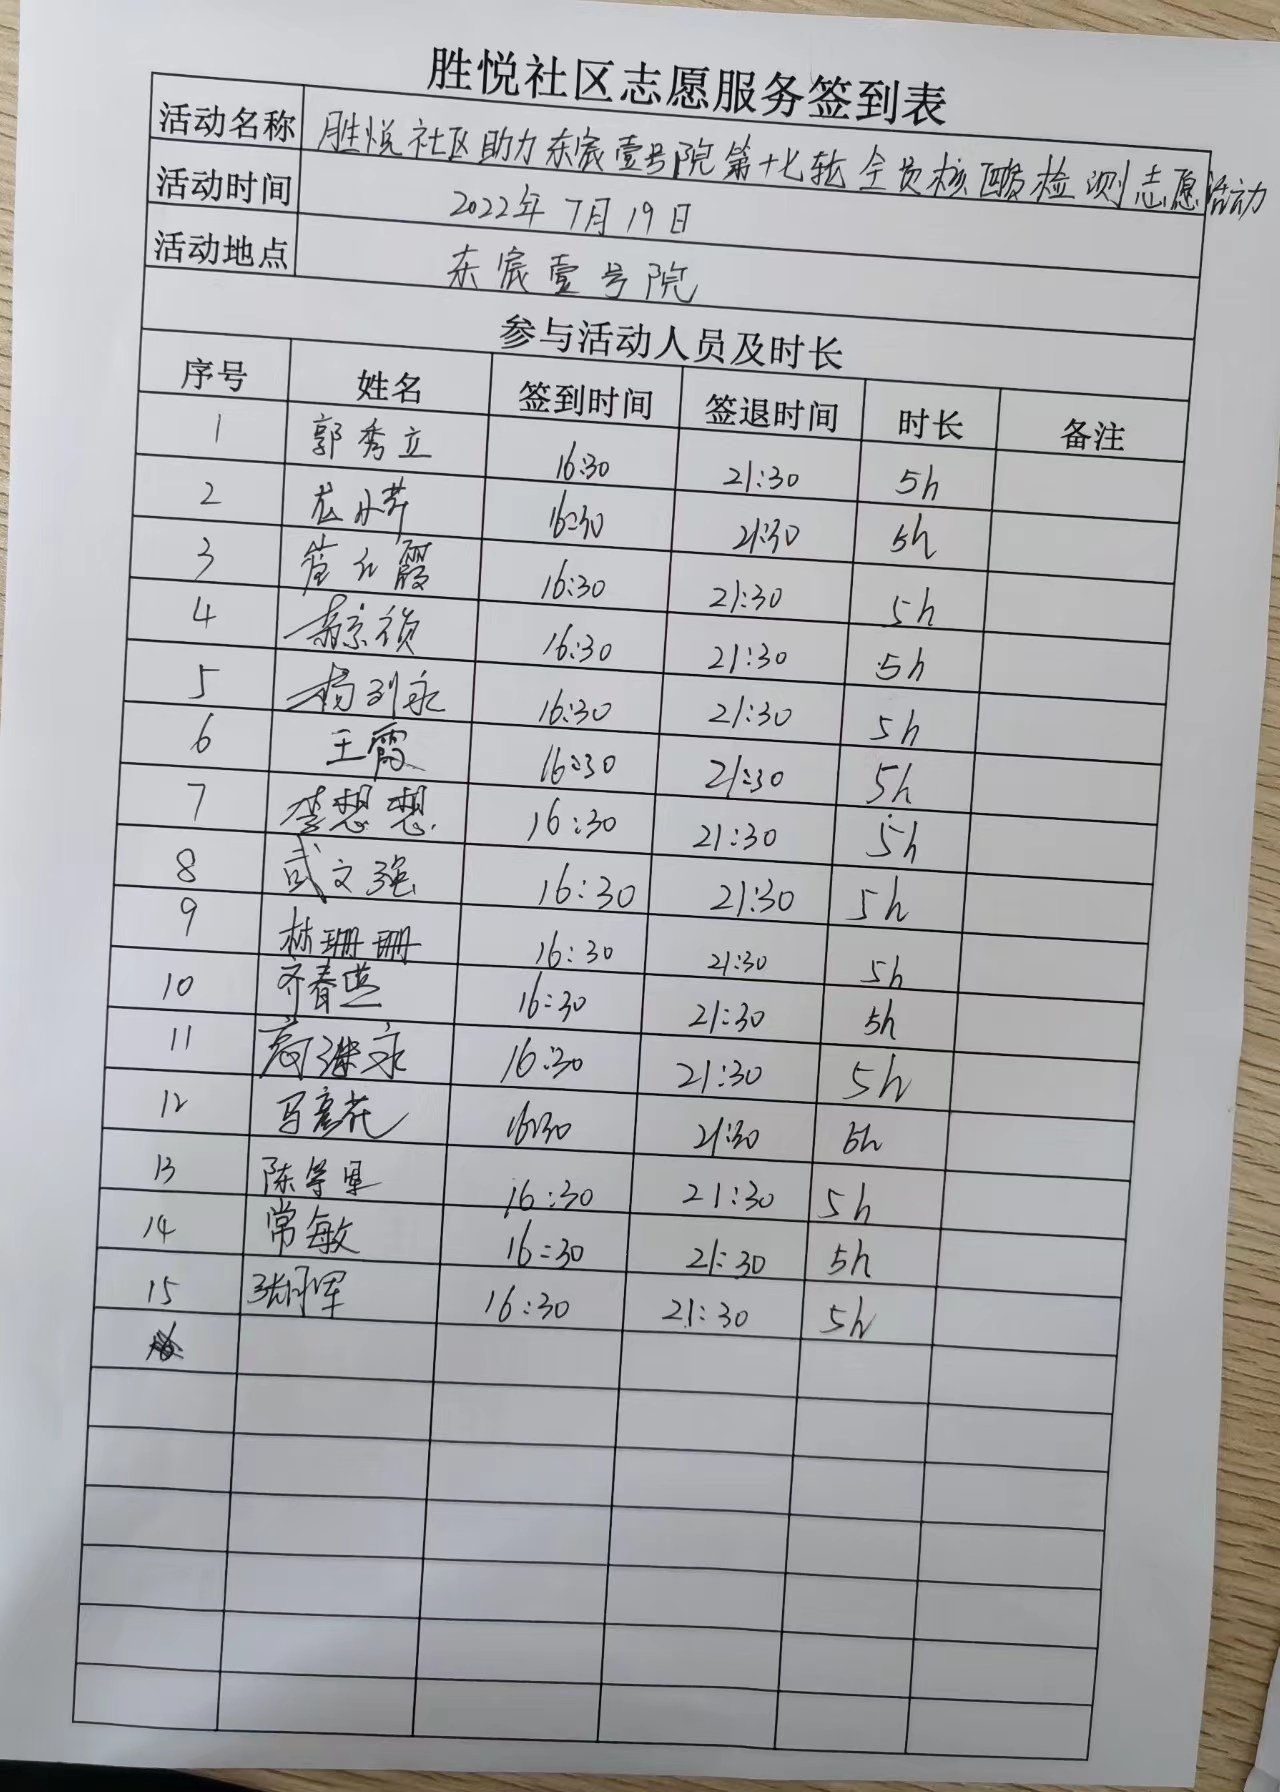 胜悦社区志愿服务签到表
活动名称 胜悦社区助力东宸壹号院第十七轮全员核酸检测志愿活动
活动时间 2022年7月19日
活动地点 东宸壹号院
参与活动人员及时长
序号 姓名 签到时间 签退时间 时长 备注
1 郭秀立 16:30 21:30 5h
2 16:30 21:30 5h
3 霞 16:30 21:30 5h
4 16:30 21:30 5h
5 杨永 16:30 21:30 5h
6 王霞 16:30 21:30 5h
7 李想想 16:30 21:30 5h
8 武文强 16:30 21:30 5h
9 林珊珊 16:30 21:30 5h
10 齐春燕 16:30 21:30 5h
11 继永 16:30 21:30 5h
12 马花 16:30 21:30 5h
13 陈学军 16:30 21:30 5h
14 常敏 16:30 21:30 5h
15 张军 16:30 21:30 5h